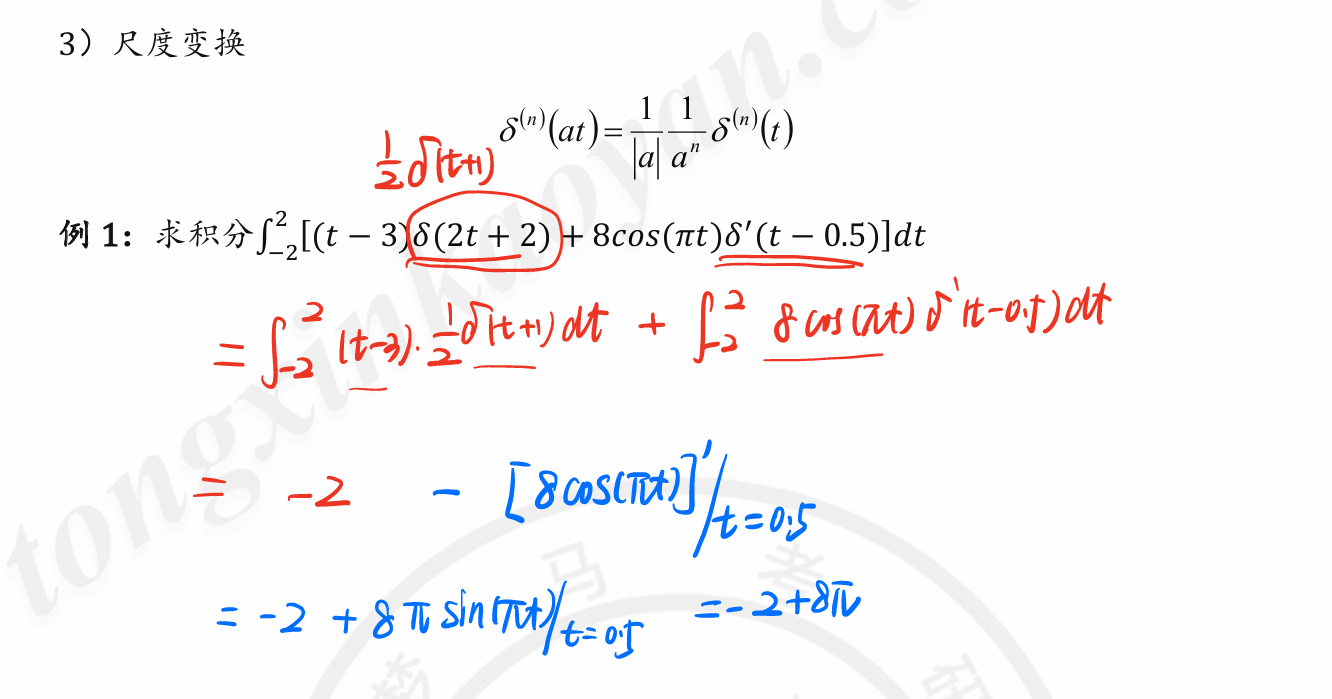 3）尺度变换
δ⁽ⁿ⁾(at)=1/|a| 1/aⁿ δ⁽ⁿ⁾(t)
1/2 δ(t+1)
例 1：求积分∫₋₂²[(t − 3)δ(2t + 2) + 8cos(πt)δ′(t − 0.5)]dt
= ∫₋₂² (t-3)·1/2 δ(t+1) dt + ∫₋₂² 8cos(πt) δ'(t-0.5) dt
= -2 - [8cos(πt)]'/t=0.5
= -2 + 8π sin(πt)/t=0.5 = -2+8π
tongxinkaoyan.c
马 考
梦 研